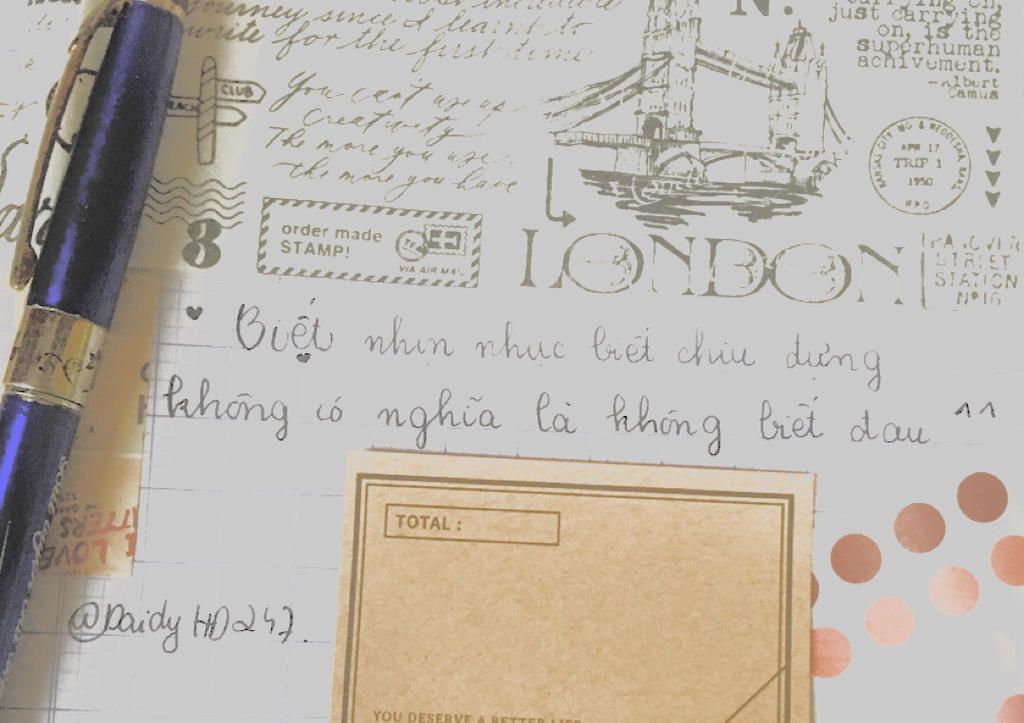 journey since I learnt to
write for the first time
N.
carrying on,
just carrying
on, is the
superhuman
achivement.
—Albert
Camus
CLUB
You can't use up
Creativity
The more you use
the more you have
APR 17
TRIP 1
1950
RPO
8
order made
STAMP!
VIA AIR MAIL
LONDON
STREET
STATION
Nº16
Biết nhịn nhục biết chịu đựng
không có nghĩa là không biết đau ^^
TOTAL :
LOVE
@DaidyHD247.
YOU DESERVE A BETTER LIFE